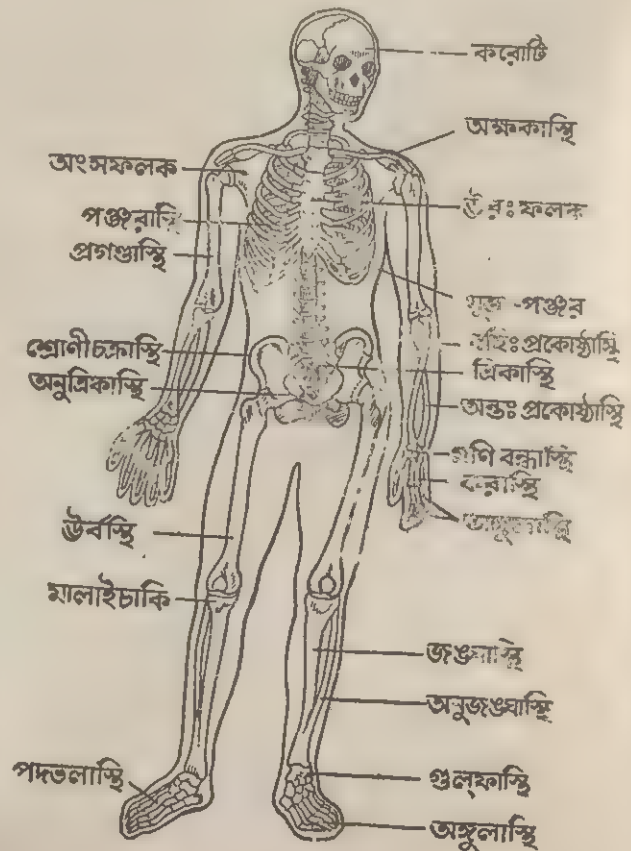 করোটি
অক্ষকাস্থি
অংসফলক
পঞ্জরাস্থি
উরঃফলক
প্রগণ্ডাস্থি
-পঞ্জর
বহিঃপ্রকোষ্ঠাস্থি
শ্রোণীচক্রাস্থি
ত্রিকাস্থি
অনুত্রিকাস্থি
অন্তঃপ্রকোষ্ঠাস্থি
মণি বন্ধাস্থি
করাস্থি
ঊর্বস্থি
মালাইচাকি
জঙ্ঘাস্থি
অনুজঙ্ঘাস্থি
পদতলাস্থি
গুল্ফাস্থি
অঙ্গুলাস্থি